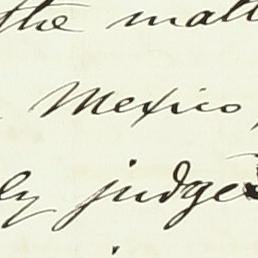 the matt
Mexico,
ly judges